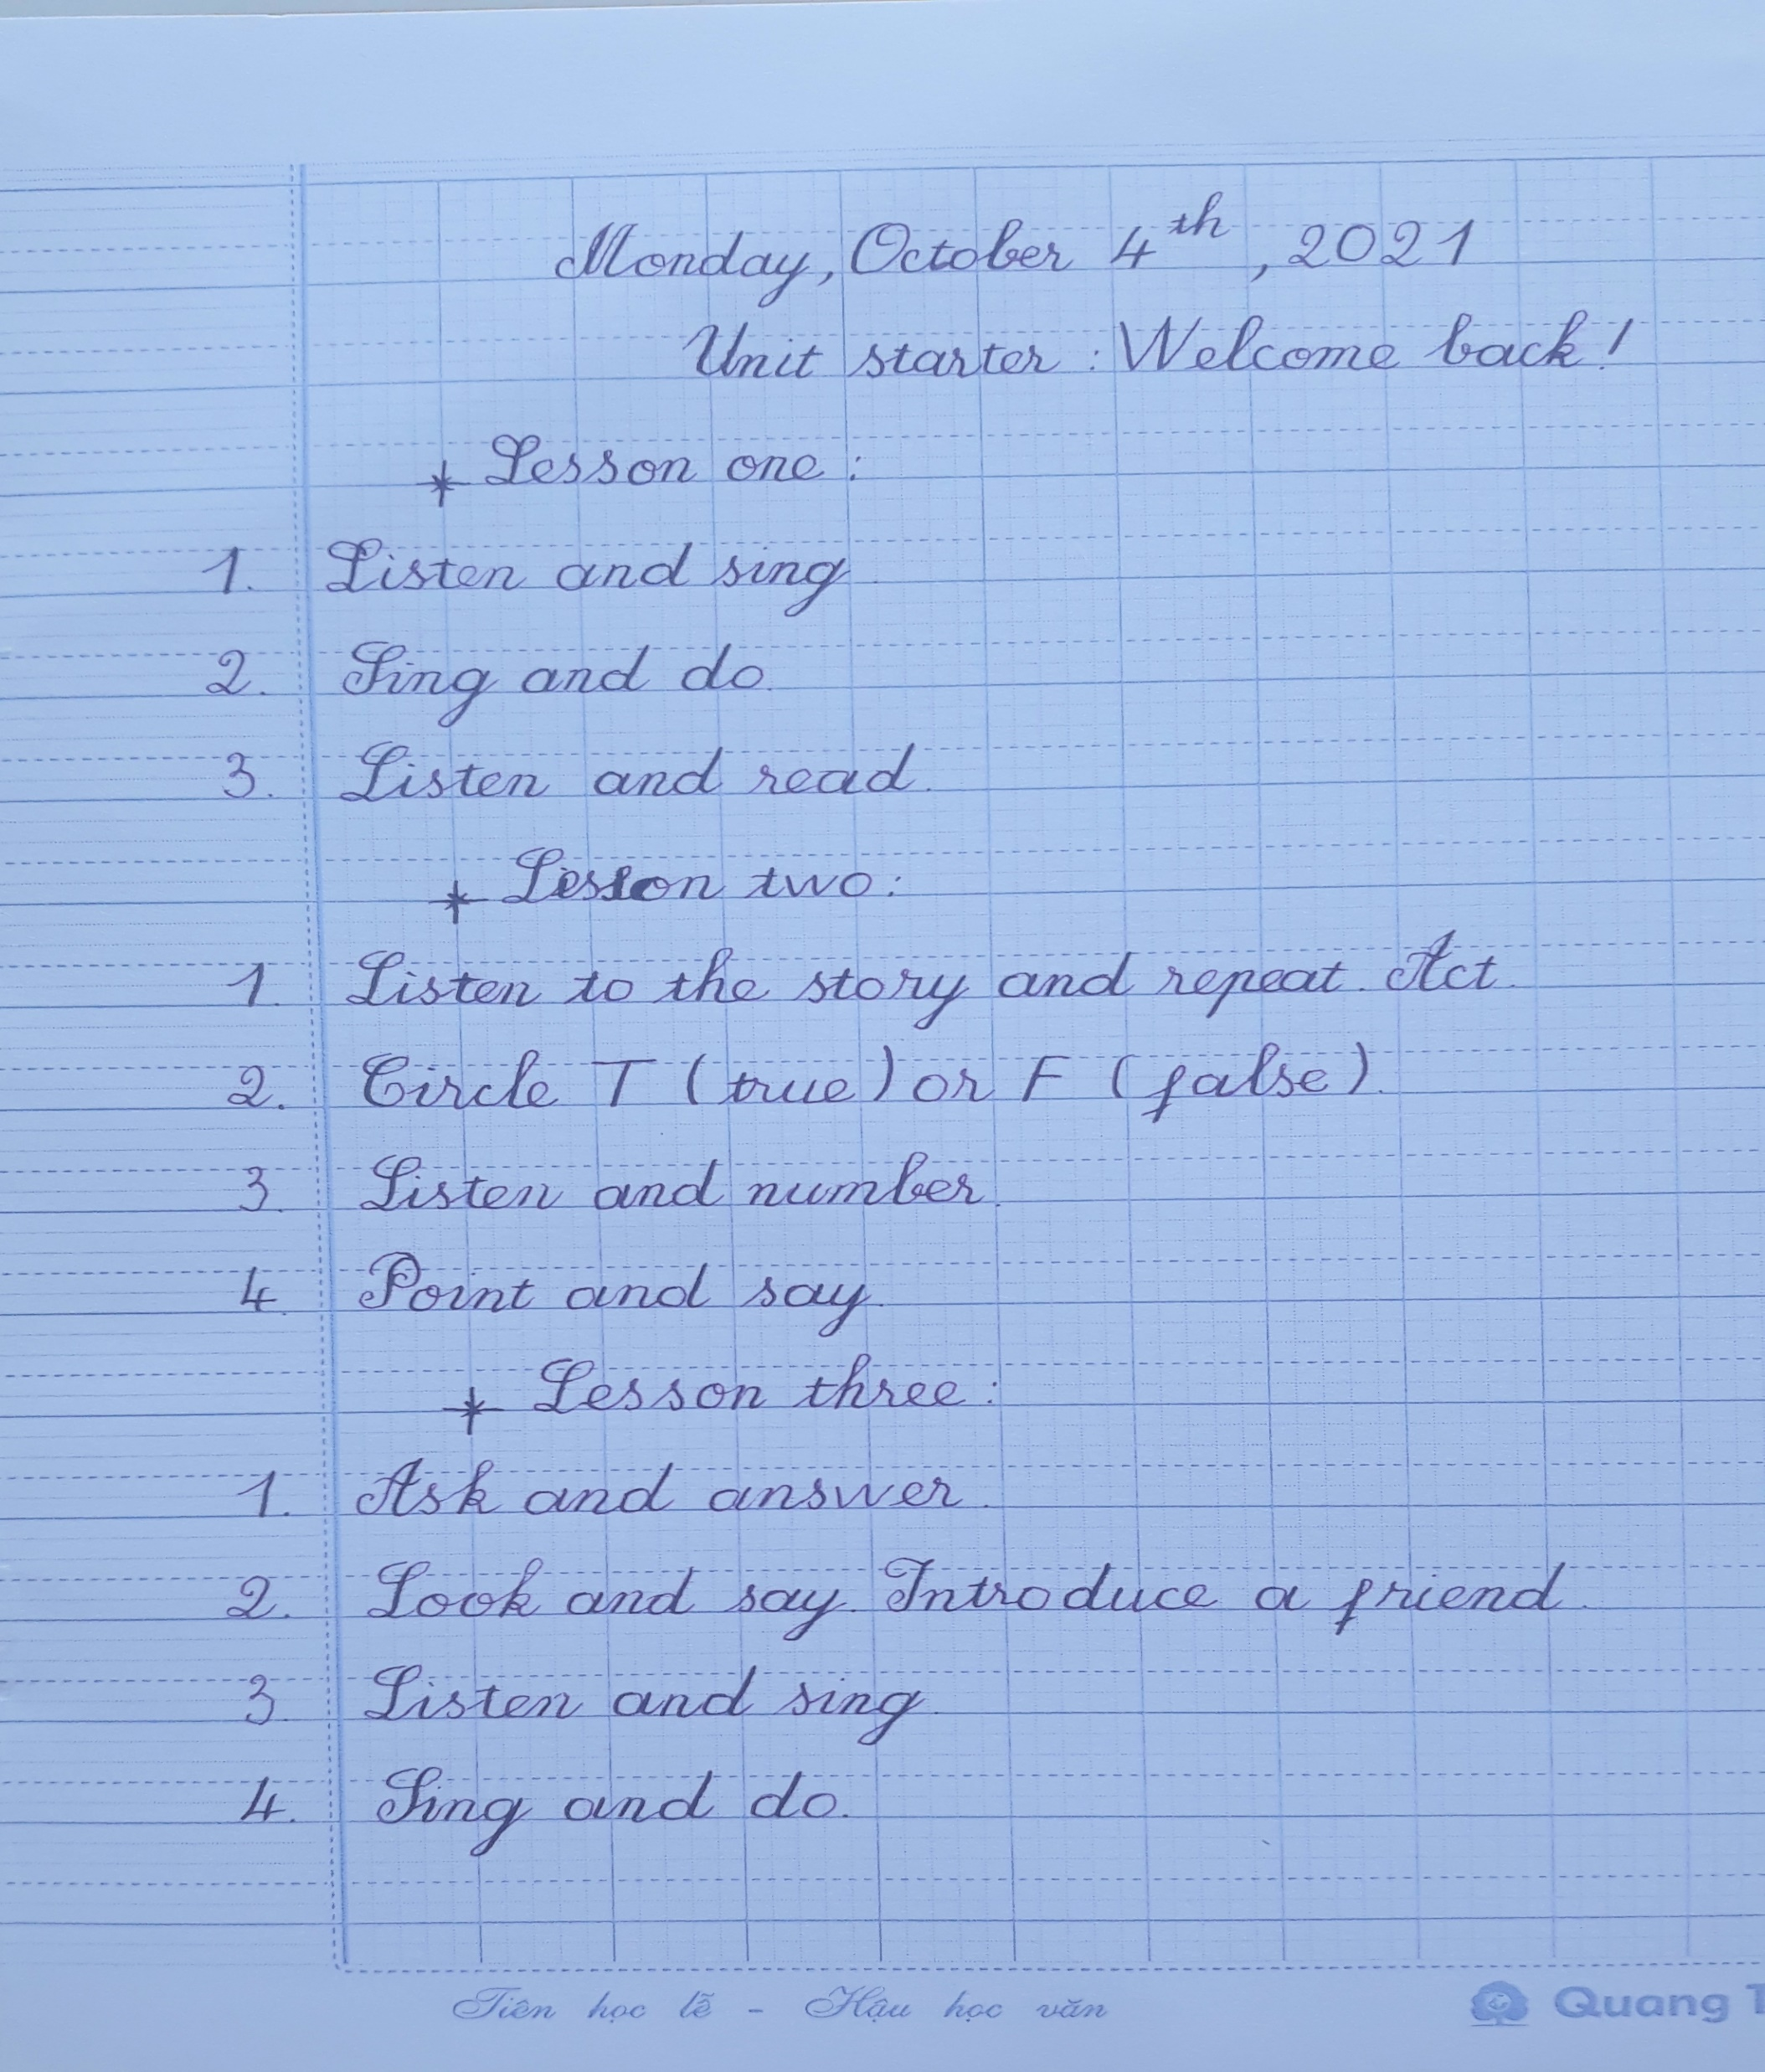 Monday, October 4th, 2021
Unit starter: Welcome back!
* Lesson one:
1. Listen and sing
2. Sing and do.
3. Listen and read.
* Lesson two:
1. Listen to the story and repeat. Act.
2. Circle T (true) or F (false).
3. Listen and number.
4. Point and say.
* Lesson three:
1. Ask and answer.
2. Look and say. Introduce a friend.
3. Listen and sing.
4. Sing and do.
Tiên học lễ - Hậu học văn
Quang